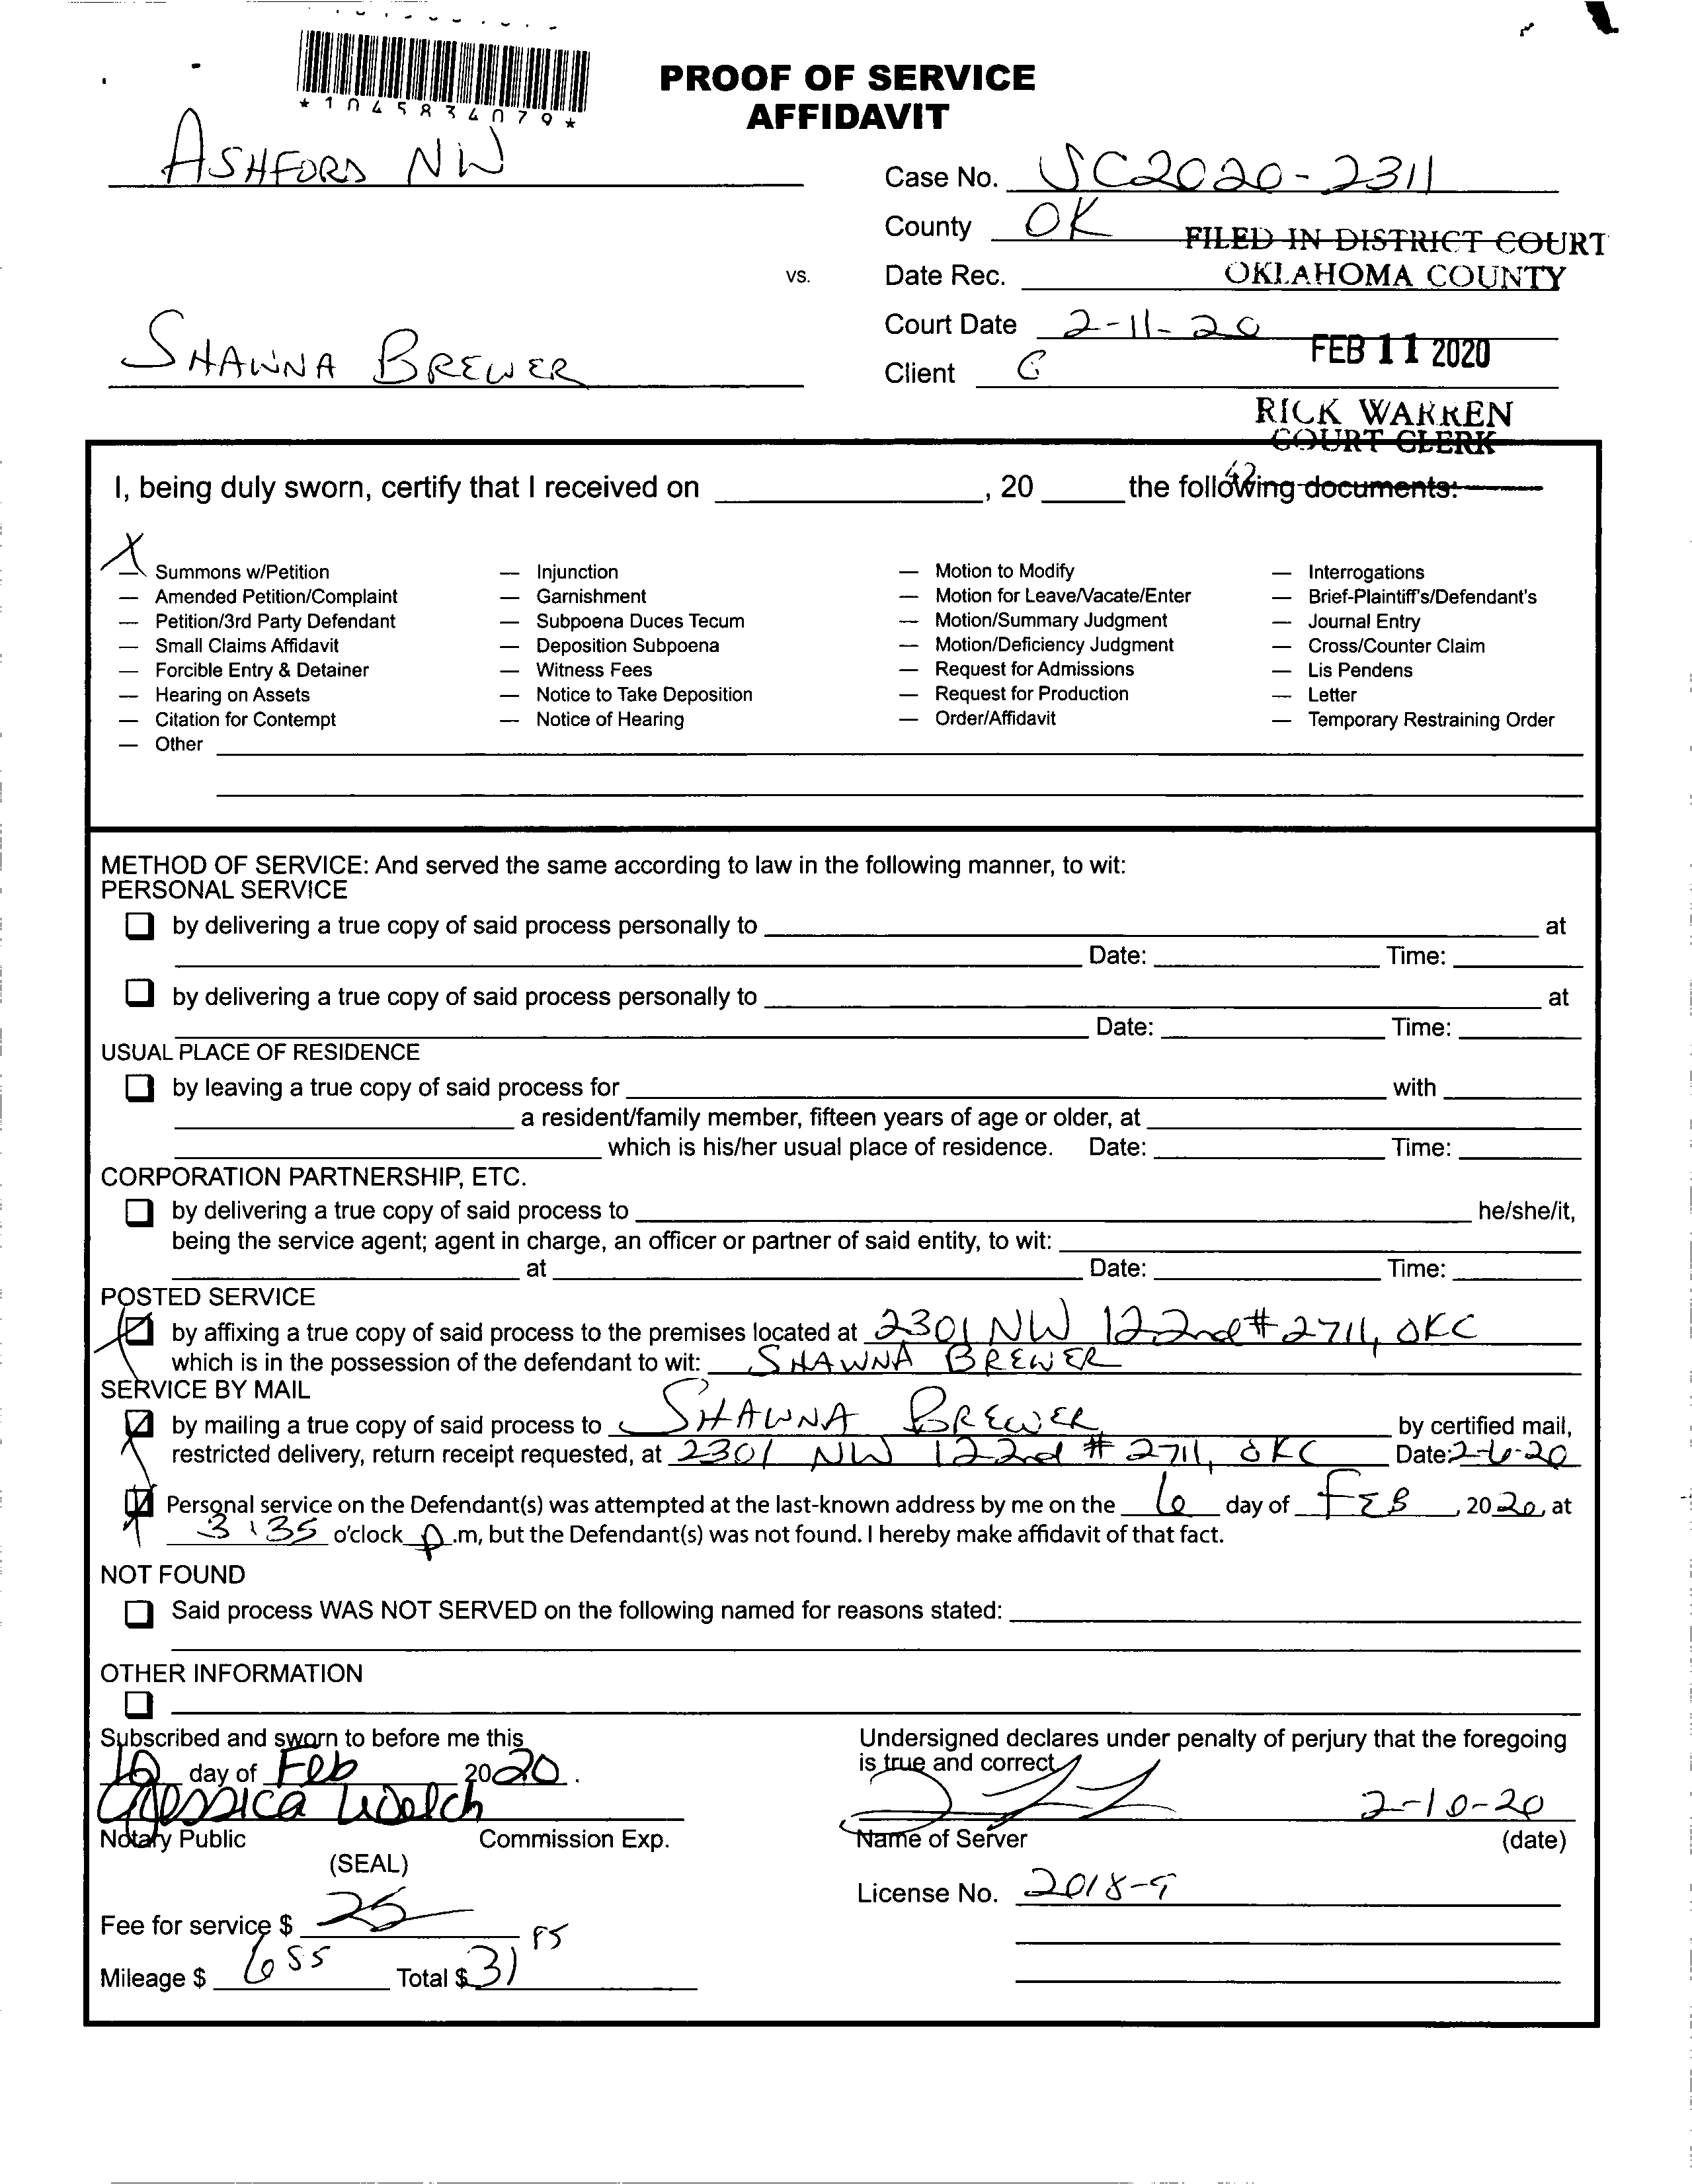 *1045834079*
PROOF OF SERVICE
AFFIDAVIT
ASHFORD NW
Case No. SC2020-2311
County OK
FILED IN DISTRICT COURT
OKLAHOMA COUNTY
vs.
Date Rec.
Court Date 2-11-20
FEB 11 2020
SHAWNA BREWER
Client G
RICK WARREN
COURT CLERK
42
I, being duly sworn, certify that I received on ____, 20 ____ the following documents:
X Summons w/Petition — Injunction — Motion to Modify — Interrogations
— Amended Petition/Complaint — Garnishment — Motion for Leave/Vacate/Enter — Brief-Plaintiff's/Defendant's
— Petition/3rd Party Defendant — Subpoena Duces Tecum — Motion/Summary Judgment — Journal Entry
— Small Claims Affidavit — Deposition Subpoena — Motion/Deficiency Judgment — Cross/Counter Claim
— Forcible Entry & Detainer — Witness Fees — Request for Admissions — Lis Pendens
— Hearing on Assets — Notice to Take Deposition — Request for Production — Letter
— Citation for Contempt — Notice of Hearing — Order/Affidavit — Temporary Restraining Order
— Other
METHOD OF SERVICE: And served the same according to law in the following manner, to wit:
PERSONAL SERVICE
by delivering a true copy of said process personally to ____ at
Date: ____ Time: ____
by delivering a true copy of said process personally to ____ at
Date: ____ Time: ____
USUAL PLACE OF RESIDENCE
by leaving a true copy of said process for ____ with ____
a resident/family member, fifteen years of age or older, at ____
which is his/her usual place of residence. Date: ____ Time: ____
CORPORATION PARTNERSHIP, ETC.
by delivering a true copy of said process to ____ he/she/it,
being the service agent; agent in charge, an officer or partner of said entity, to wit: ____
at ____ Date: ____ Time: ____
POSTED SERVICE
by affixing a true copy of said process to the premises located at 2301 NW 122nd # 2711, OKC
which is in the possession of the defendant to wit: SHAWNA BREWER
SERVICE BY MAIL
by mailing a true copy of said process to SHAWNA BREWER by certified mail,
restricted delivery, return receipt requested, at 2301 NW 122nd # 2711, OKC Date: 2-6-20
Personal service on the Defendant(s) was attempted at the last-known address by me on the 6 day of FEB, 2020, at
3:35 o'clock p.m, but the Defendant(s) was not found. I hereby make affidavit of that fact.
NOT FOUND
Said process WAS NOT SERVED on the following named for reasons stated:
OTHER INFORMATION
Subscribed and sworn to before me this
10 day of Feb 2020.
Jessica Welch
Notary Public Commission Exp.
(SEAL)
Undersigned declares under penalty of perjury that the foregoing
is true and correct
2-10-20
Name of Server (date)
License No. 2018-9
Fee for service $ 25
Mileage $ 6 85 Total $ 31 85